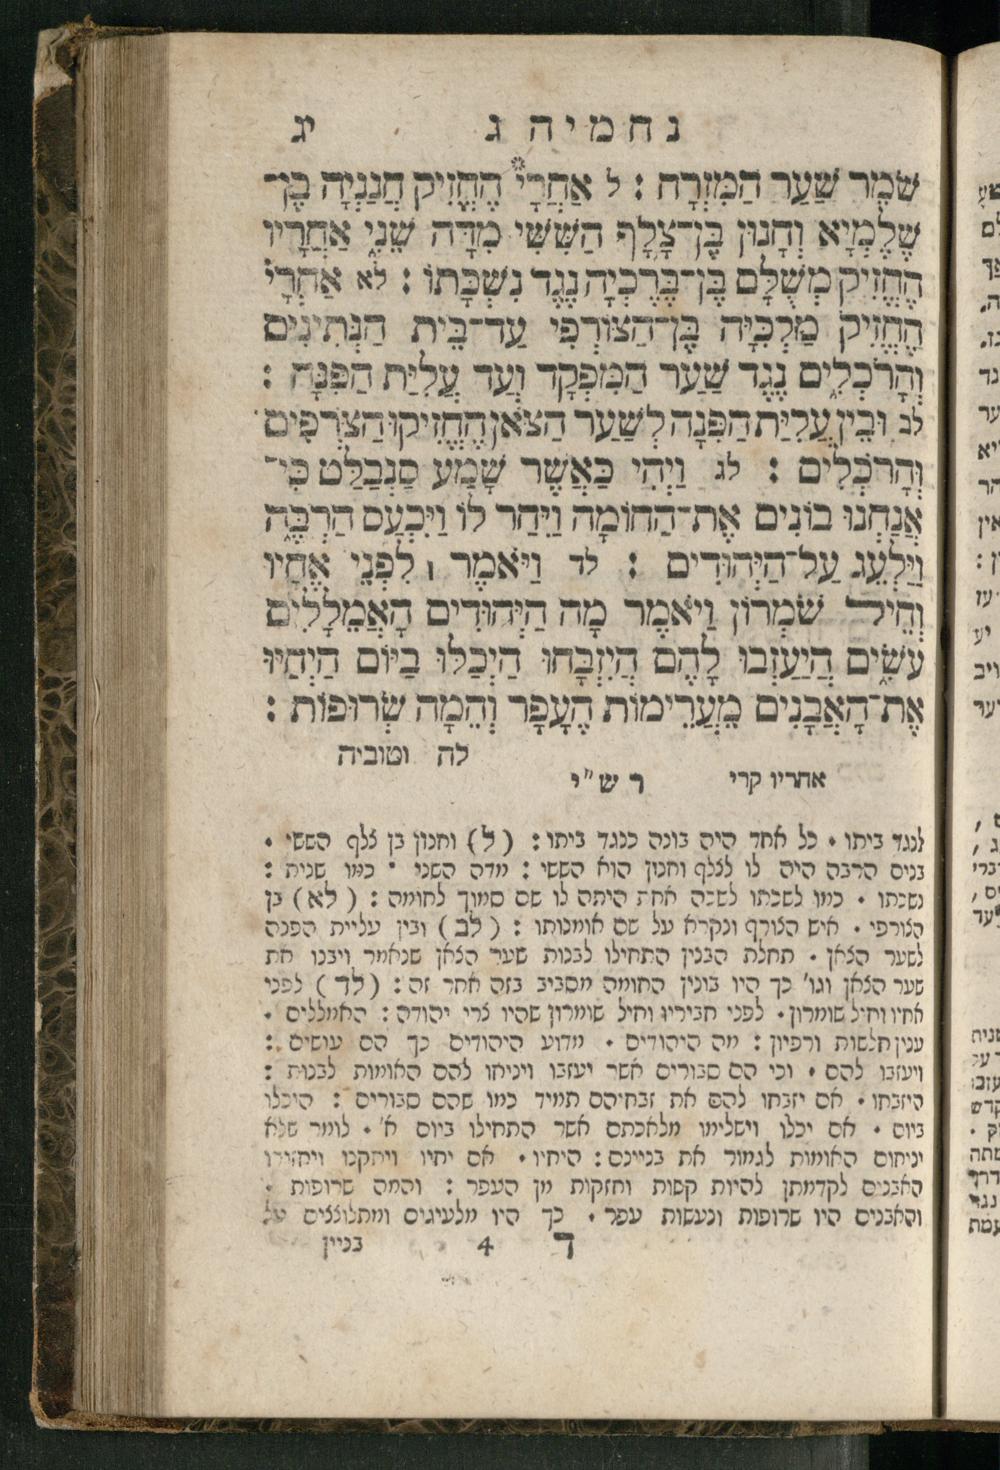 נחמיה ג יג
שֹׁמֵר שַׁעַר הַמִּזְרָח : ל אַחֲרָי הֶחֱזִיק חֲנַנְיָה בֶן־
שֶׁלֶמְיָא וְחָנוּן בֶּן־צָלָף הַשִּׁשִּׁי מִדָּה שֵׁנִי אַחֲרָיו
הֶחֱזִיק מְשֻׁלָּם בֶּן־בֶּרֶכְיָה נֶגֶד נִשְׁכָּתוֹ : לא אַחֲרָי
הֶחֱזִיק מַלְכִּיָּה בֶּן־הַצּוֹרְפִי עַד־בֵּית הַנְּתִינִים
וְהָרֹכְלִים נֶגֶד שַׁעַר הַמִּפְקָד וְעַד עֲלִיַּת הַפִּנָּה :
לב וּבֵין עֲלִיַּת הַפִּנָּה לְשַׁעַר הַצֹּאן הֶחֱזִיקוּ הַצֹּרְפִים
וְהָרֹכְלִים : לג וַיְהִי כַּאֲשֶׁר שָׁמַע סַנְבַלַּט כִּי־
אֲנַחְנוּ בוֹנִים אֶת־הַחוֹמָה וַיִּחַר לוֹ וַיִּכְעַס הַרְבֵּה
וַיַּלְעֵג עַל־הַיְּהוּדִים : לד וַיֹּאמֶר ׀ לִפְנֵי אֶחָיו
וְחֵיל שֹׁמְרוֹן וַיֹּאמֶר מָה הַיְּהוּדִים הָאֲמֵלָלִים
עֹשִׂים הֲיַעַזְבוּ לָהֶם הֲיִזְבָּחוּ הַיְכַלּוּ בַיּוֹם הַיְחַיּוּ
אֶת־הָאֲבָנִים מֵעֲרֵימוֹת הֶעָפָר וְהֵמָּה שְׂרוּפוֹת :
לה וטוביה
אחריו קרי
רש"י
לנגד ביתו · כל אחד היה בונה כנגד ביתו : (ל) וחנון בן צלף הששי ·
בנים הרבה היה לו לצלף וחנון הוא הששי : מדה השני · כמו שנית :
נשכתו · כמו לשכתו לשכה אחת היתה לו שם סמוך לחומה : (לא) בן
הצורפי · איש הצורף ונקרא על שם אומנותו : (לב) ובין עליית הפנה
לשער הצאן · תחלת הבנין התחילו לבנות שער הצאן שנאמר ויבנו את
שער הצאן וגו' כך היו בונין החומה מסביב בזה אחר זה : (לד) לפני
אחיו וחיל שומרון · לפני חביריו וחיל שומרון שהיו צרי יהודה : האמללים ·
ענין חלשות ורפיון : מה היהודים · מדוע היהודים כך הם עושים :
ויעזבו להם · וכי הם סבורים אשר יעזבו ויניחו להם האומות לבנות :
היזבחו · אם יזבחו להם את זבחיהם תמיד כמו שהם סבורים : היכלו
ביום · אם יכלו וישלימו מלאכתם אשר התחילו ביום א' · לומר שלא
יניחום האומות לגמור את בניינם : היחיו · אם יחיו ויתקנו ויחזירו
האבנים לקדמתן להיות קשות וחזקות מן העפר : והמה שרופות ·
והאבנים היו שרופות ונעשות עפר · כך היו מלעיגים ומתלוצצים על
ד 4 בניין